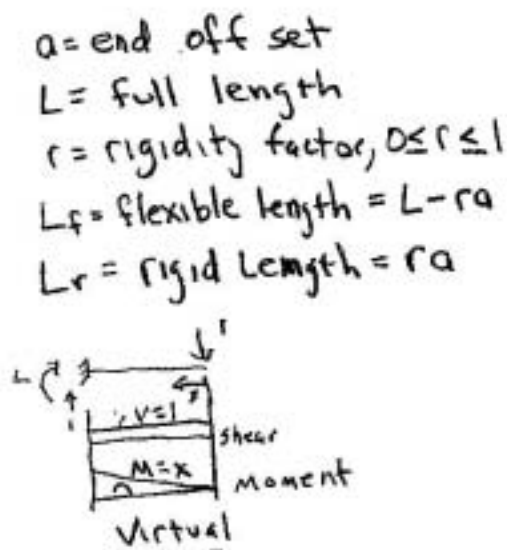 a = end off set
L = full length
r = rigidity factor, 0 ≤ r ≤ 1
Lf = flexible length = L - ra
Lr = rigid Length = ra
L
1
V=1
shear
M=x
Moment
Virtual